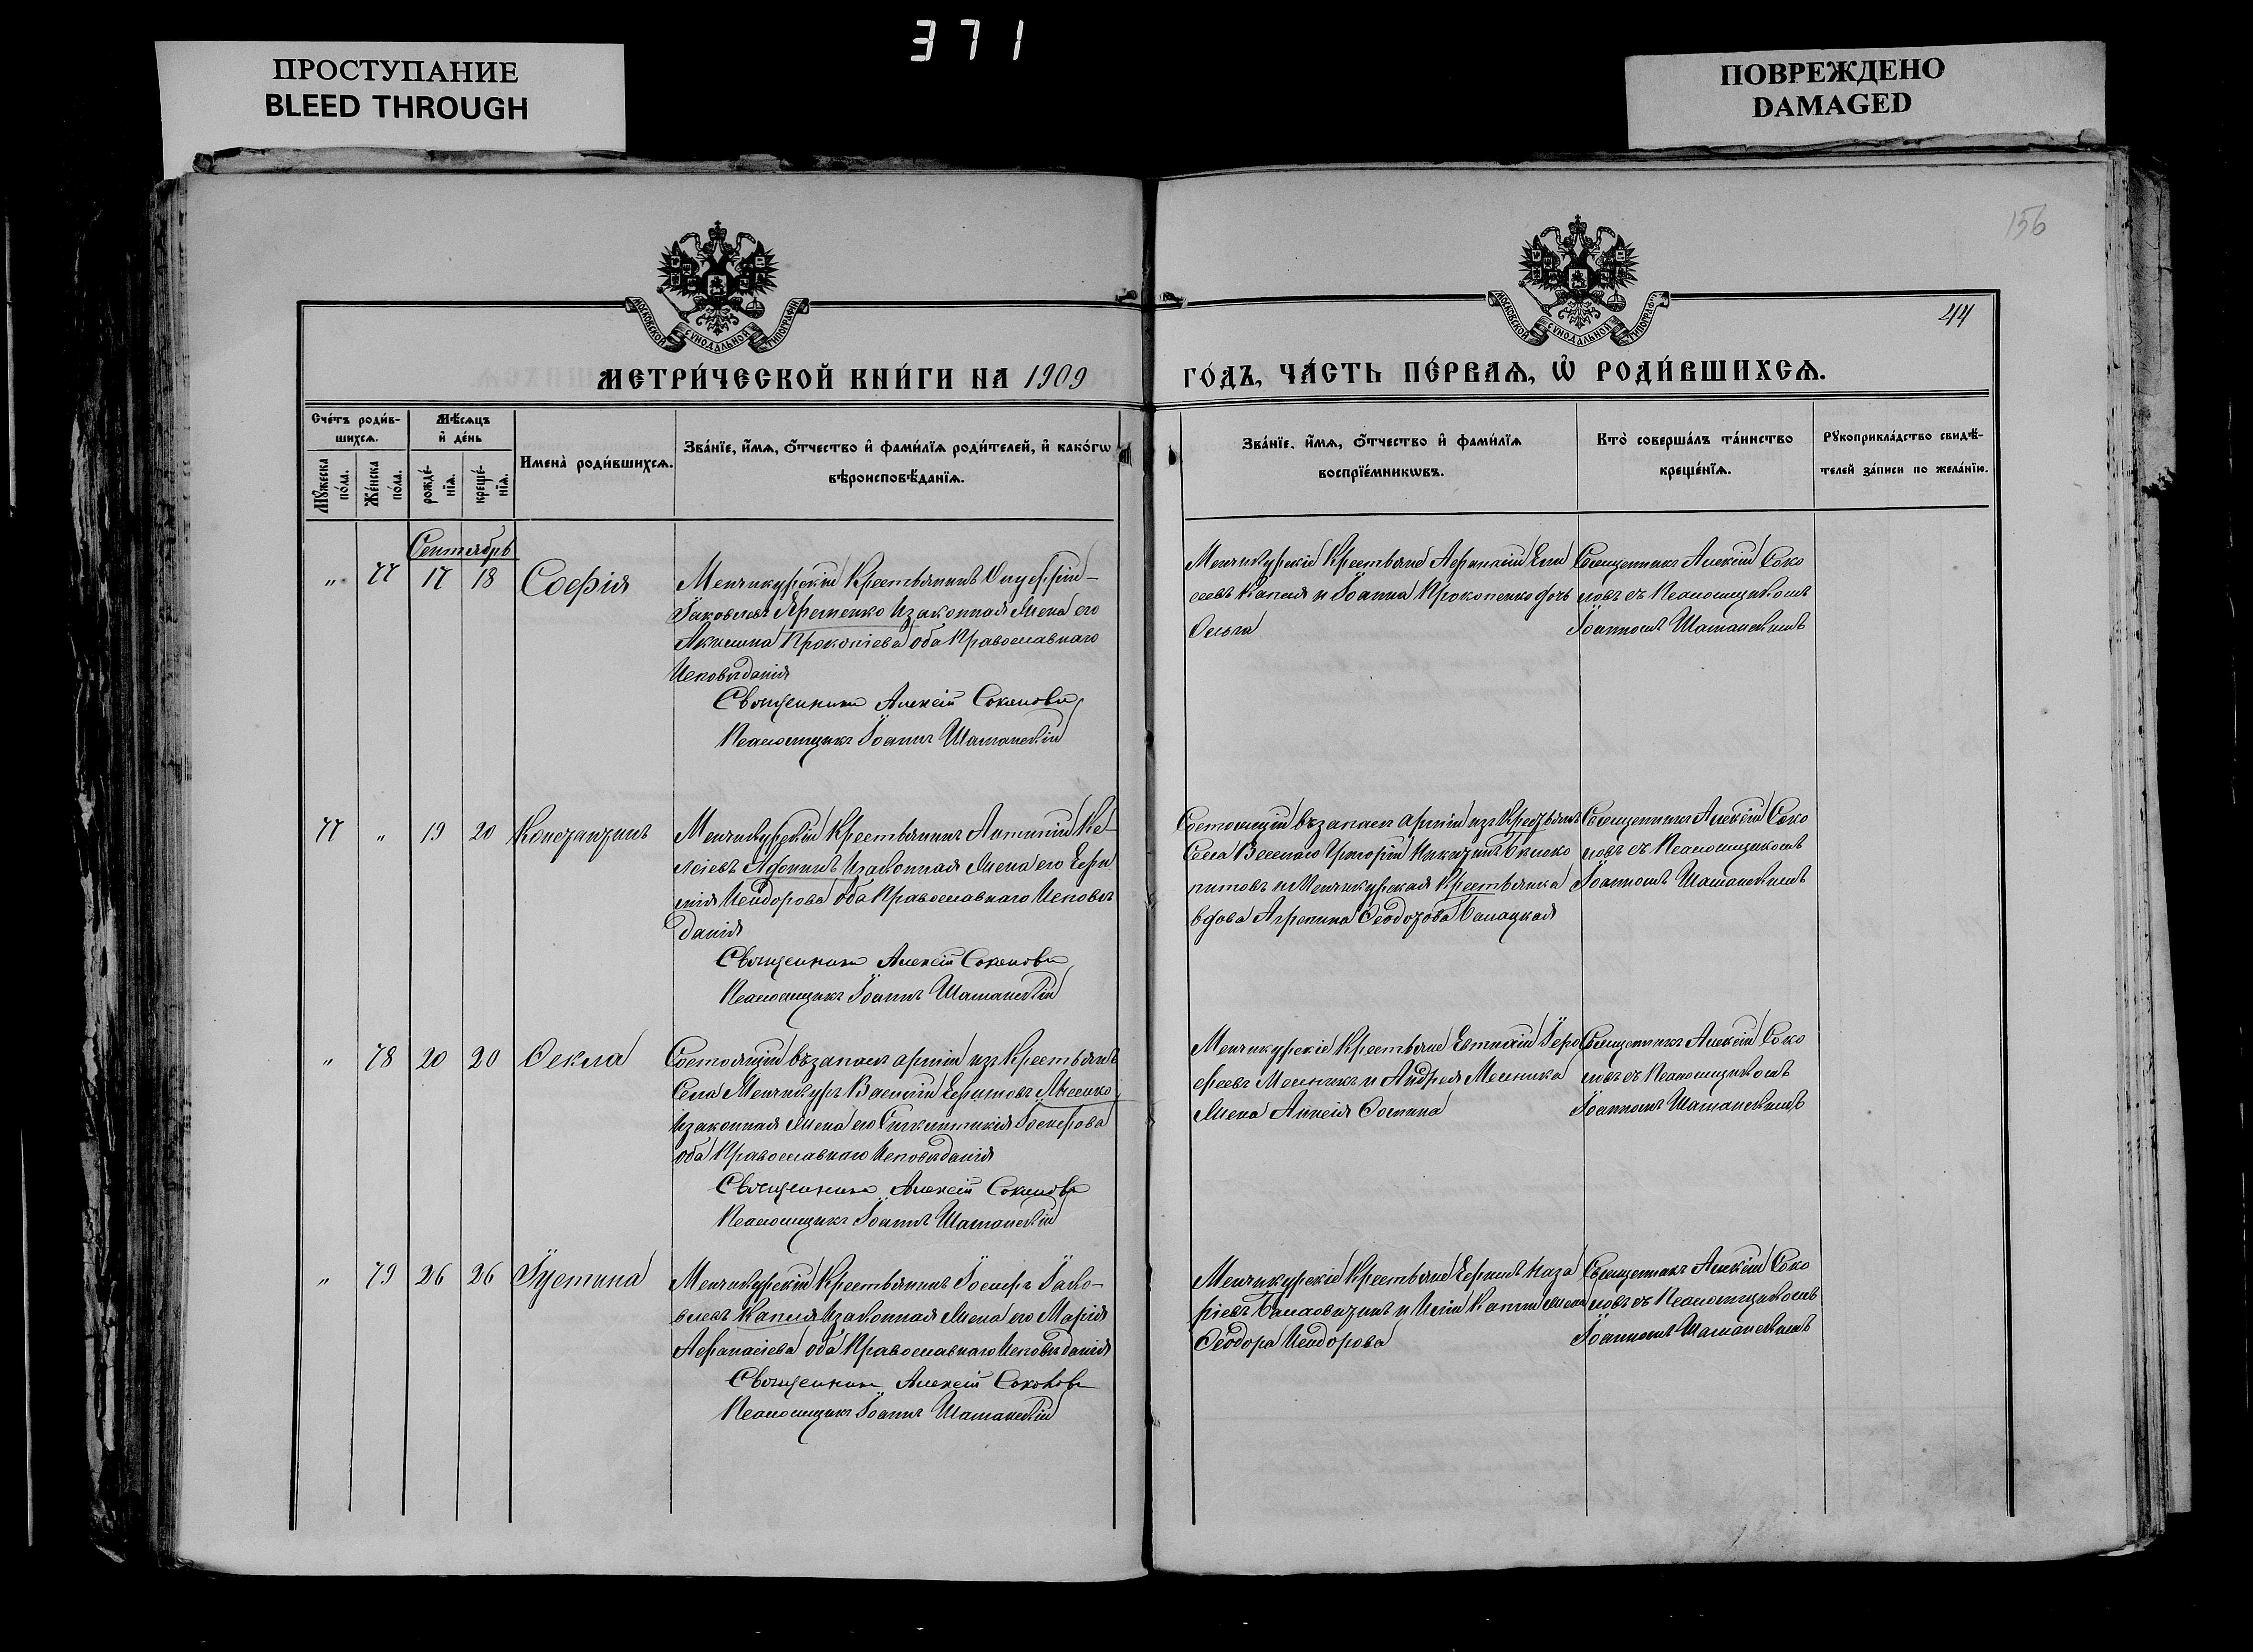 371
ПРОСТУПАНИЕ
BLEED THROUGH
ПОВРЕЖДЕНО
DAMAGED
156
44
МОСКОВСКОЙ СѴНОДАЛЬНОЙ ТИПОГРАФІИ
МОСКОВСКОЙ СѴНОДАЛЬНОЙ ТИПОГРАФІИ
МЕТРИ́ЧЕСКОЙ КНИ́ГИ НА 1909
ГО́ДЪ, ЧА́СТЬ ПЕ́РВАѦ, Ѡ҆ РОДИ́ВШИХСѦ.
Сче́тъ роди́в-
шихсѧ.
Мѣ́сѧцъ
и҆ де́нь
Мꙋ́жеска по́ла.
Же́нска по́ла.
рожде́-
нїѧ.
креще́-
нїѧ.
Имена̀ роди́вшихсѧ.
Зва́нїе, и҆́мѧ, о҆́тчество и҆ фами́лїѧ роди́телей, и҆ како́гѡ
вѣроисповѣ́данїѧ.
Зва́нїе, и҆́мѧ, о҆́тчество и҆ фами́лїѧ
воспрїе́мникѡвъ.
Кто̀ соверша́лъ та́инство
креще́нїѧ.
Рꙋкоприкла́дство свидѣ́-
телей за́писи по жела́нїю.
Сентябрь
" 77 17 18 Софія
Менчикурскій Крестьянинъ Онуфрій
Іаковлевъ Яременко и законная жена его
Акилина Прокопіева оба Православнаго
Исповѣданія
Священникъ Алексій Соколовъ
Псаломщикъ Іоаннъ Шаманскій
Менчикурскіе Крестьяне Афанасій Ели
сеевъ Капля и Іоанна Прокопенко дочь
Ольга
Священникъ Алексій Соко
ловъ съ Псаломщикомъ
Іоанномъ Шаманскимъ
77 " 19 20 Константинъ
Менчикурскій Крестьянинъ Антипій
Адонинъ и законная жена его
Исидорова оба Православнаго Исповѣ
данія
Священникъ Алексій Соколовъ
Псаломщикъ Іоаннъ Шаманскій
Состоящій въ запасѣ арміи изъ Крестьянъ
Села Веселаго Григорій Никитинъ
и Менчикурская Крестьянка
вдова Агрепина Ѳеодорова Балацкая
Священникъ Алексій Соко
ловъ съ Псаломщикомъ
Іоанномъ Шаманскимъ
" 78 20 20 Ѳекла
Состоящій въ запасѣ арміи изъ Крестьянъ
Села Менчикуръ Василій Лысенко
и законная жена его Сигклитикія Іосифова
оба Православнаго Исповѣданія
Священникъ Алексій Соколовъ
Псаломщикъ Іоаннъ Шаманскій
Менчикурскіе Крестьяне Евтихій Іеро
феевъ Мельникъ и Андрея Мельника
жена Анисія Ѳомина
Священникъ Алексій Соко
ловъ съ Псаломщикомъ
Іоанномъ Шаманскимъ
" 79 26 26 Іустина
Менчикурскій Крестьянинъ Іосифъ Іако-
влевъ Капля и законная жена его Марія
Афанасіева оба Православнаго Исповѣданія
Священникъ Алексій Соколовъ
Псаломщикъ Іоаннъ Шаманскій
Менчикурскіе Крестьяне Ефимъ Наза
ріевъ и Иліи Капли жена
Ѳеодора Исидорова
Священникъ Алексій Соко
ловъ съ Псаломщикомъ
Іоанномъ Шаманскимъ